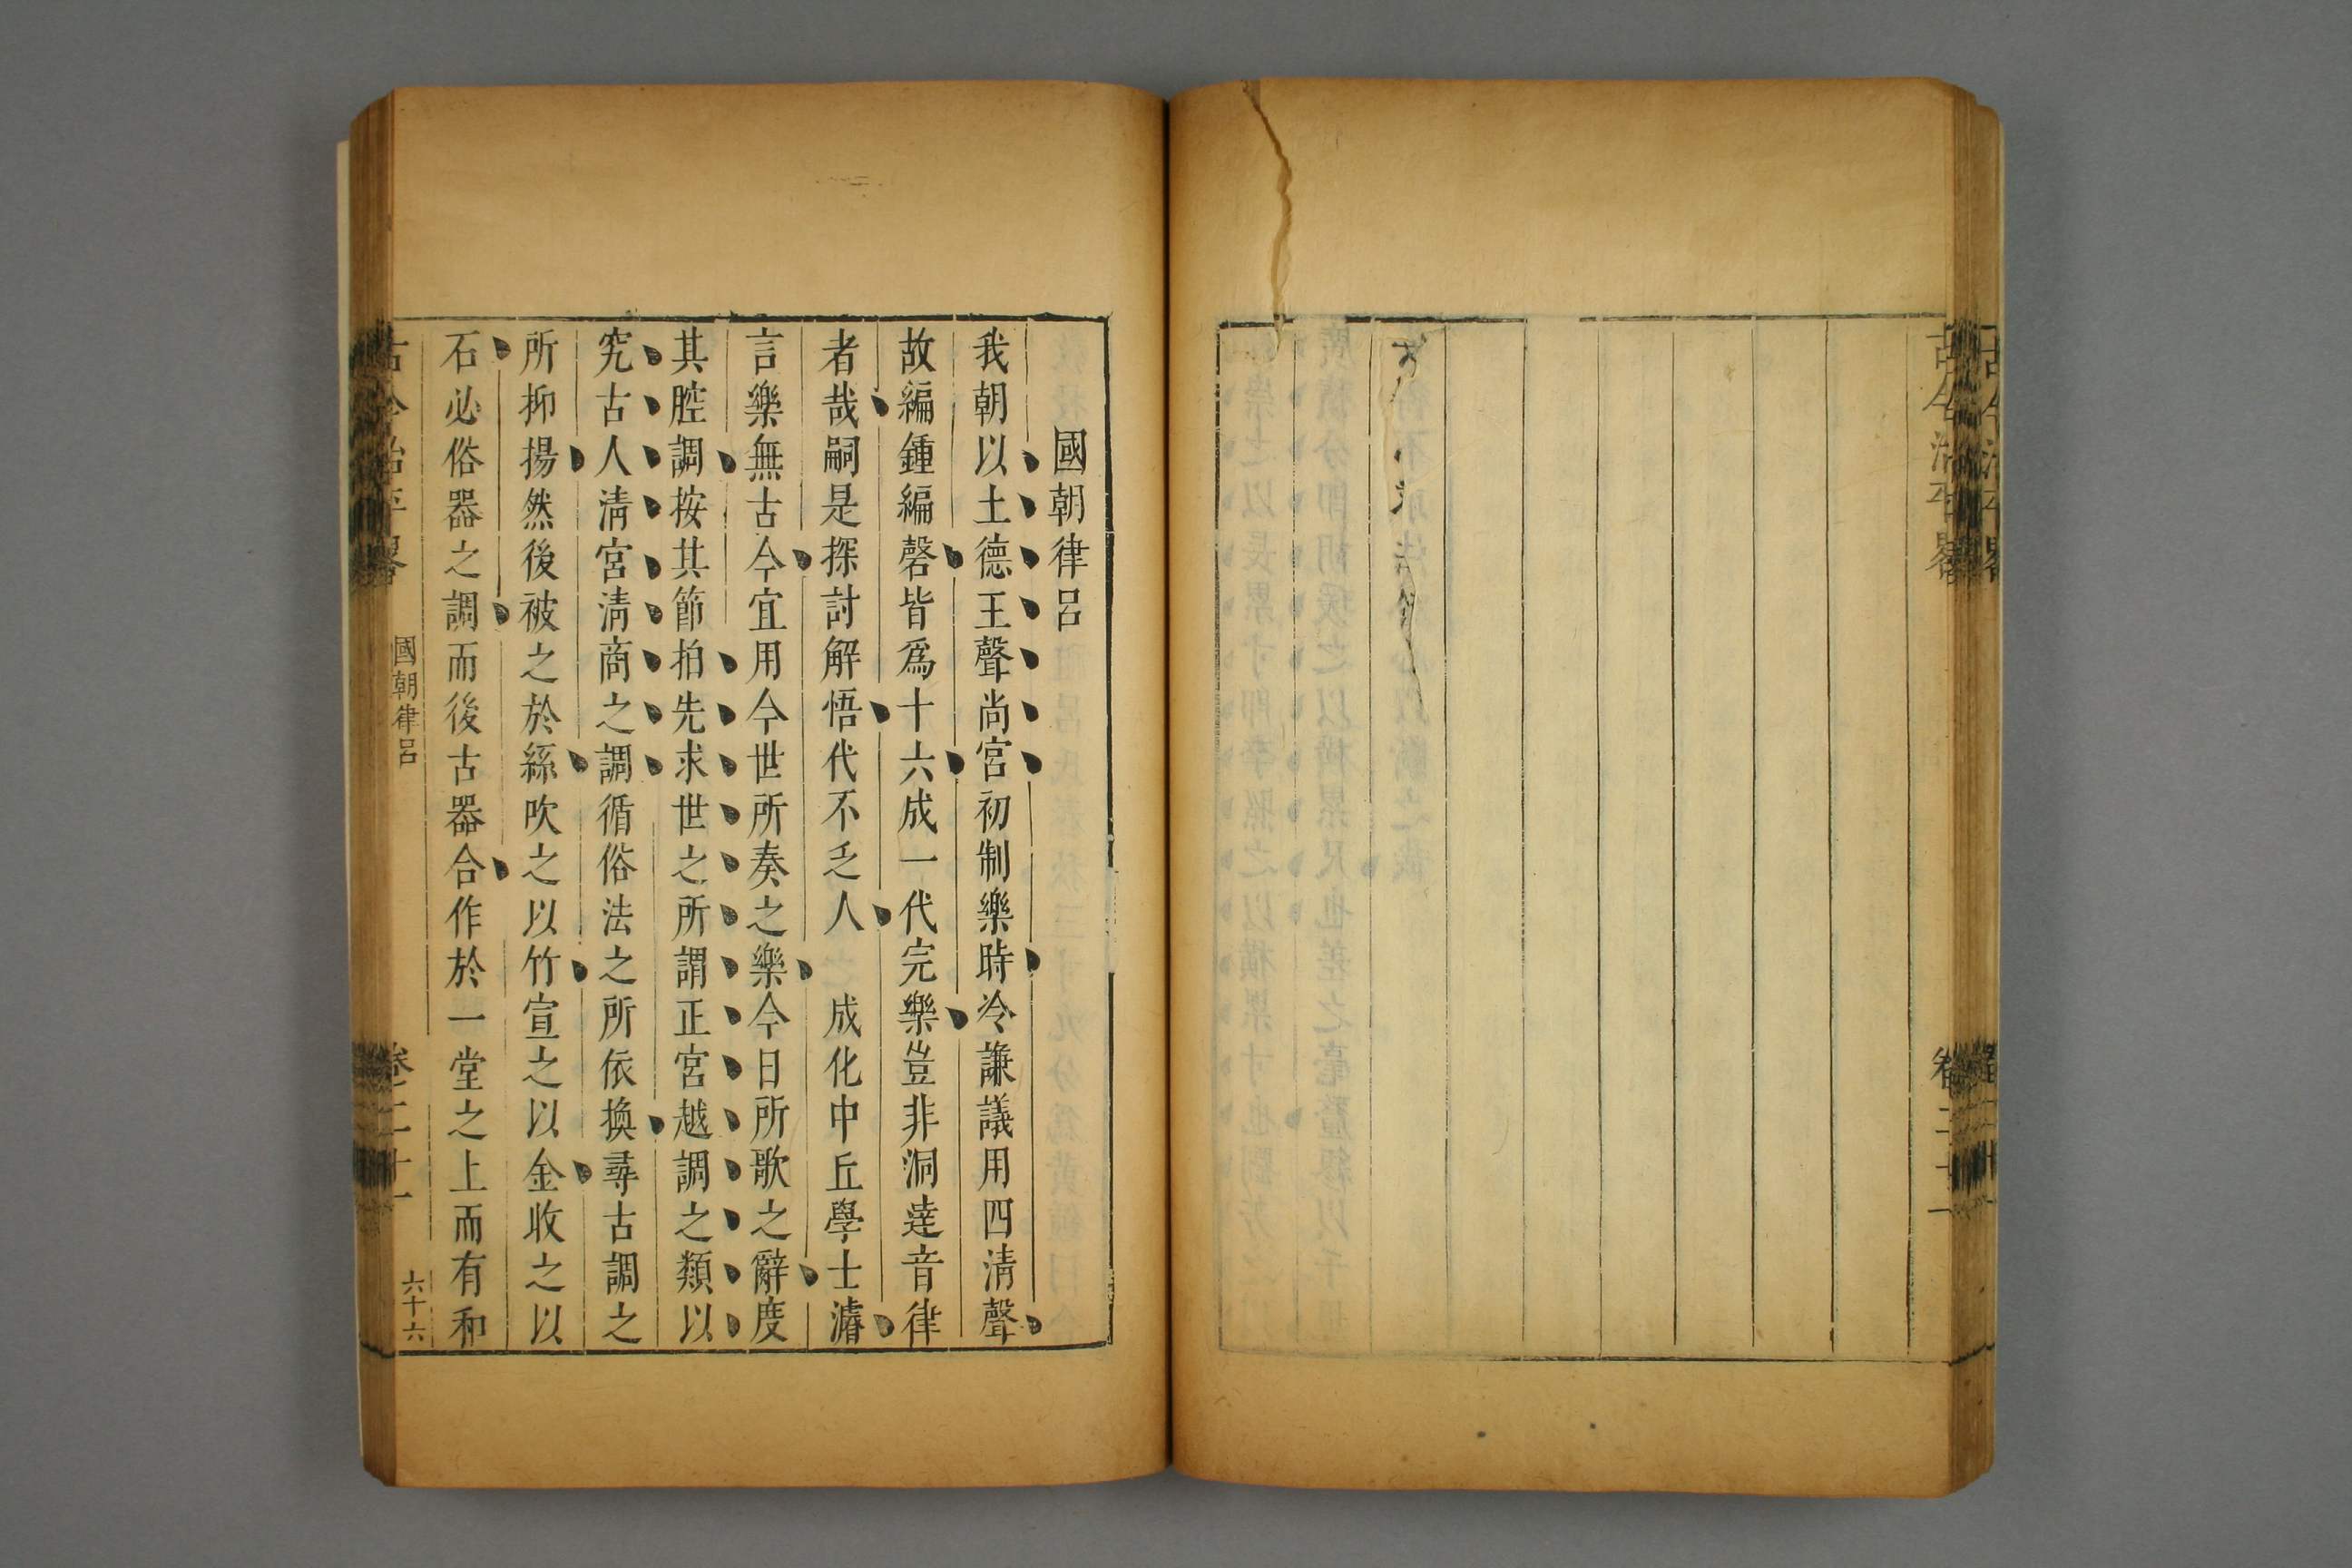 國朝律呂
我朝以土德王聲尚宮初制樂時冷謙議用四淸聲
故編鍾編磬皆爲十六成一代完樂豈非洞達音律
者哉嗣是探討解悟代不乏人　成化中丘學士濬
言樂無古今宜用今世所奏之樂今日所歌之辭度
其腔調按其節拍先求世之所謂正宮越調之類以
究古人淸宮淸商之調循俗法之所依換尋古調之
所抑揚然後被之於絲吹之以竹宣之以金收之以
石必俗器之調而後古器合作於一堂之上而有和
古今治平畧
國朝律呂
卷二十一
六十六